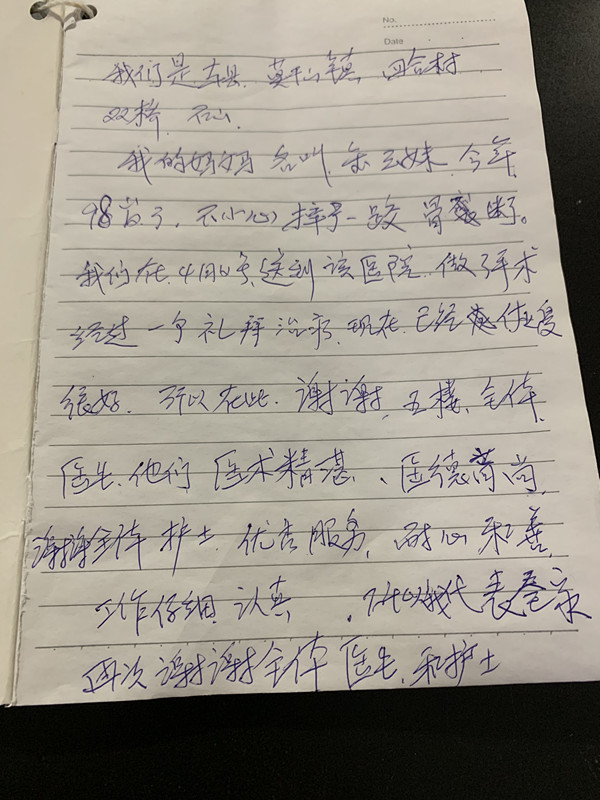 No.
Date
我们是 县 莫干山镇 四合村
22桥 石山.
我的妈妈 名叫 玉妹 今年
98岁了,不小心 摔 一跤 骨 断了。
我们在 4月4号送到 该医院 做了手术
经过一个礼拜治疗,现在已经 恢复
很好. 所以在此 谢谢 五楼 全体
医生,他们 医术精湛、医德 尚
谢谢全体护士 优 服务,耐心和善,
工作仔细 认真 .所以我代表 家
再次谢谢全体医生,和护士